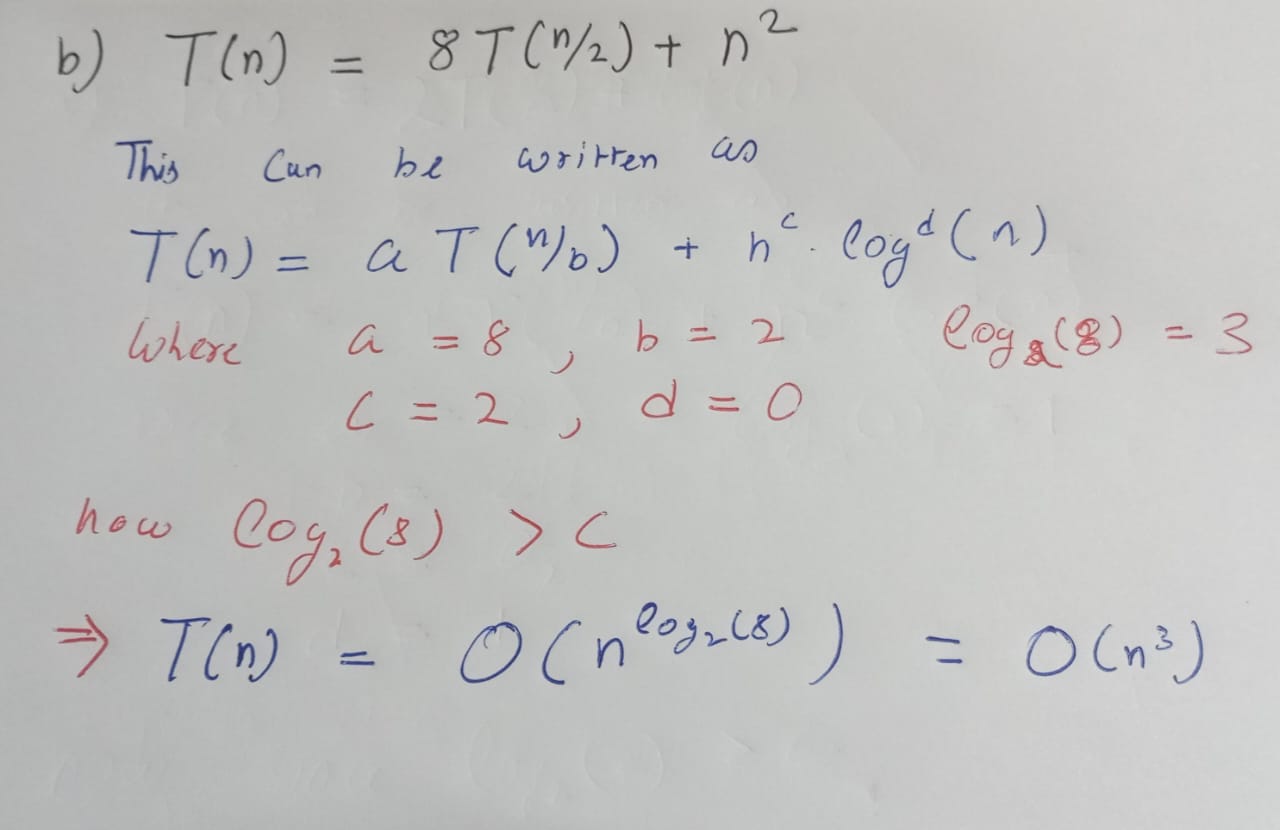 b) T(n) = 8T(n/2) + n²
This can be written as
T(n) = a T(n/b) + n^c . log^d(n)
Where a = 8 , b = 2 log₂(8) = 3
c = 2 , d = 0
now log₂(8) > c
⇒ T(n) = O(n^log₂(8)) = O(n³)